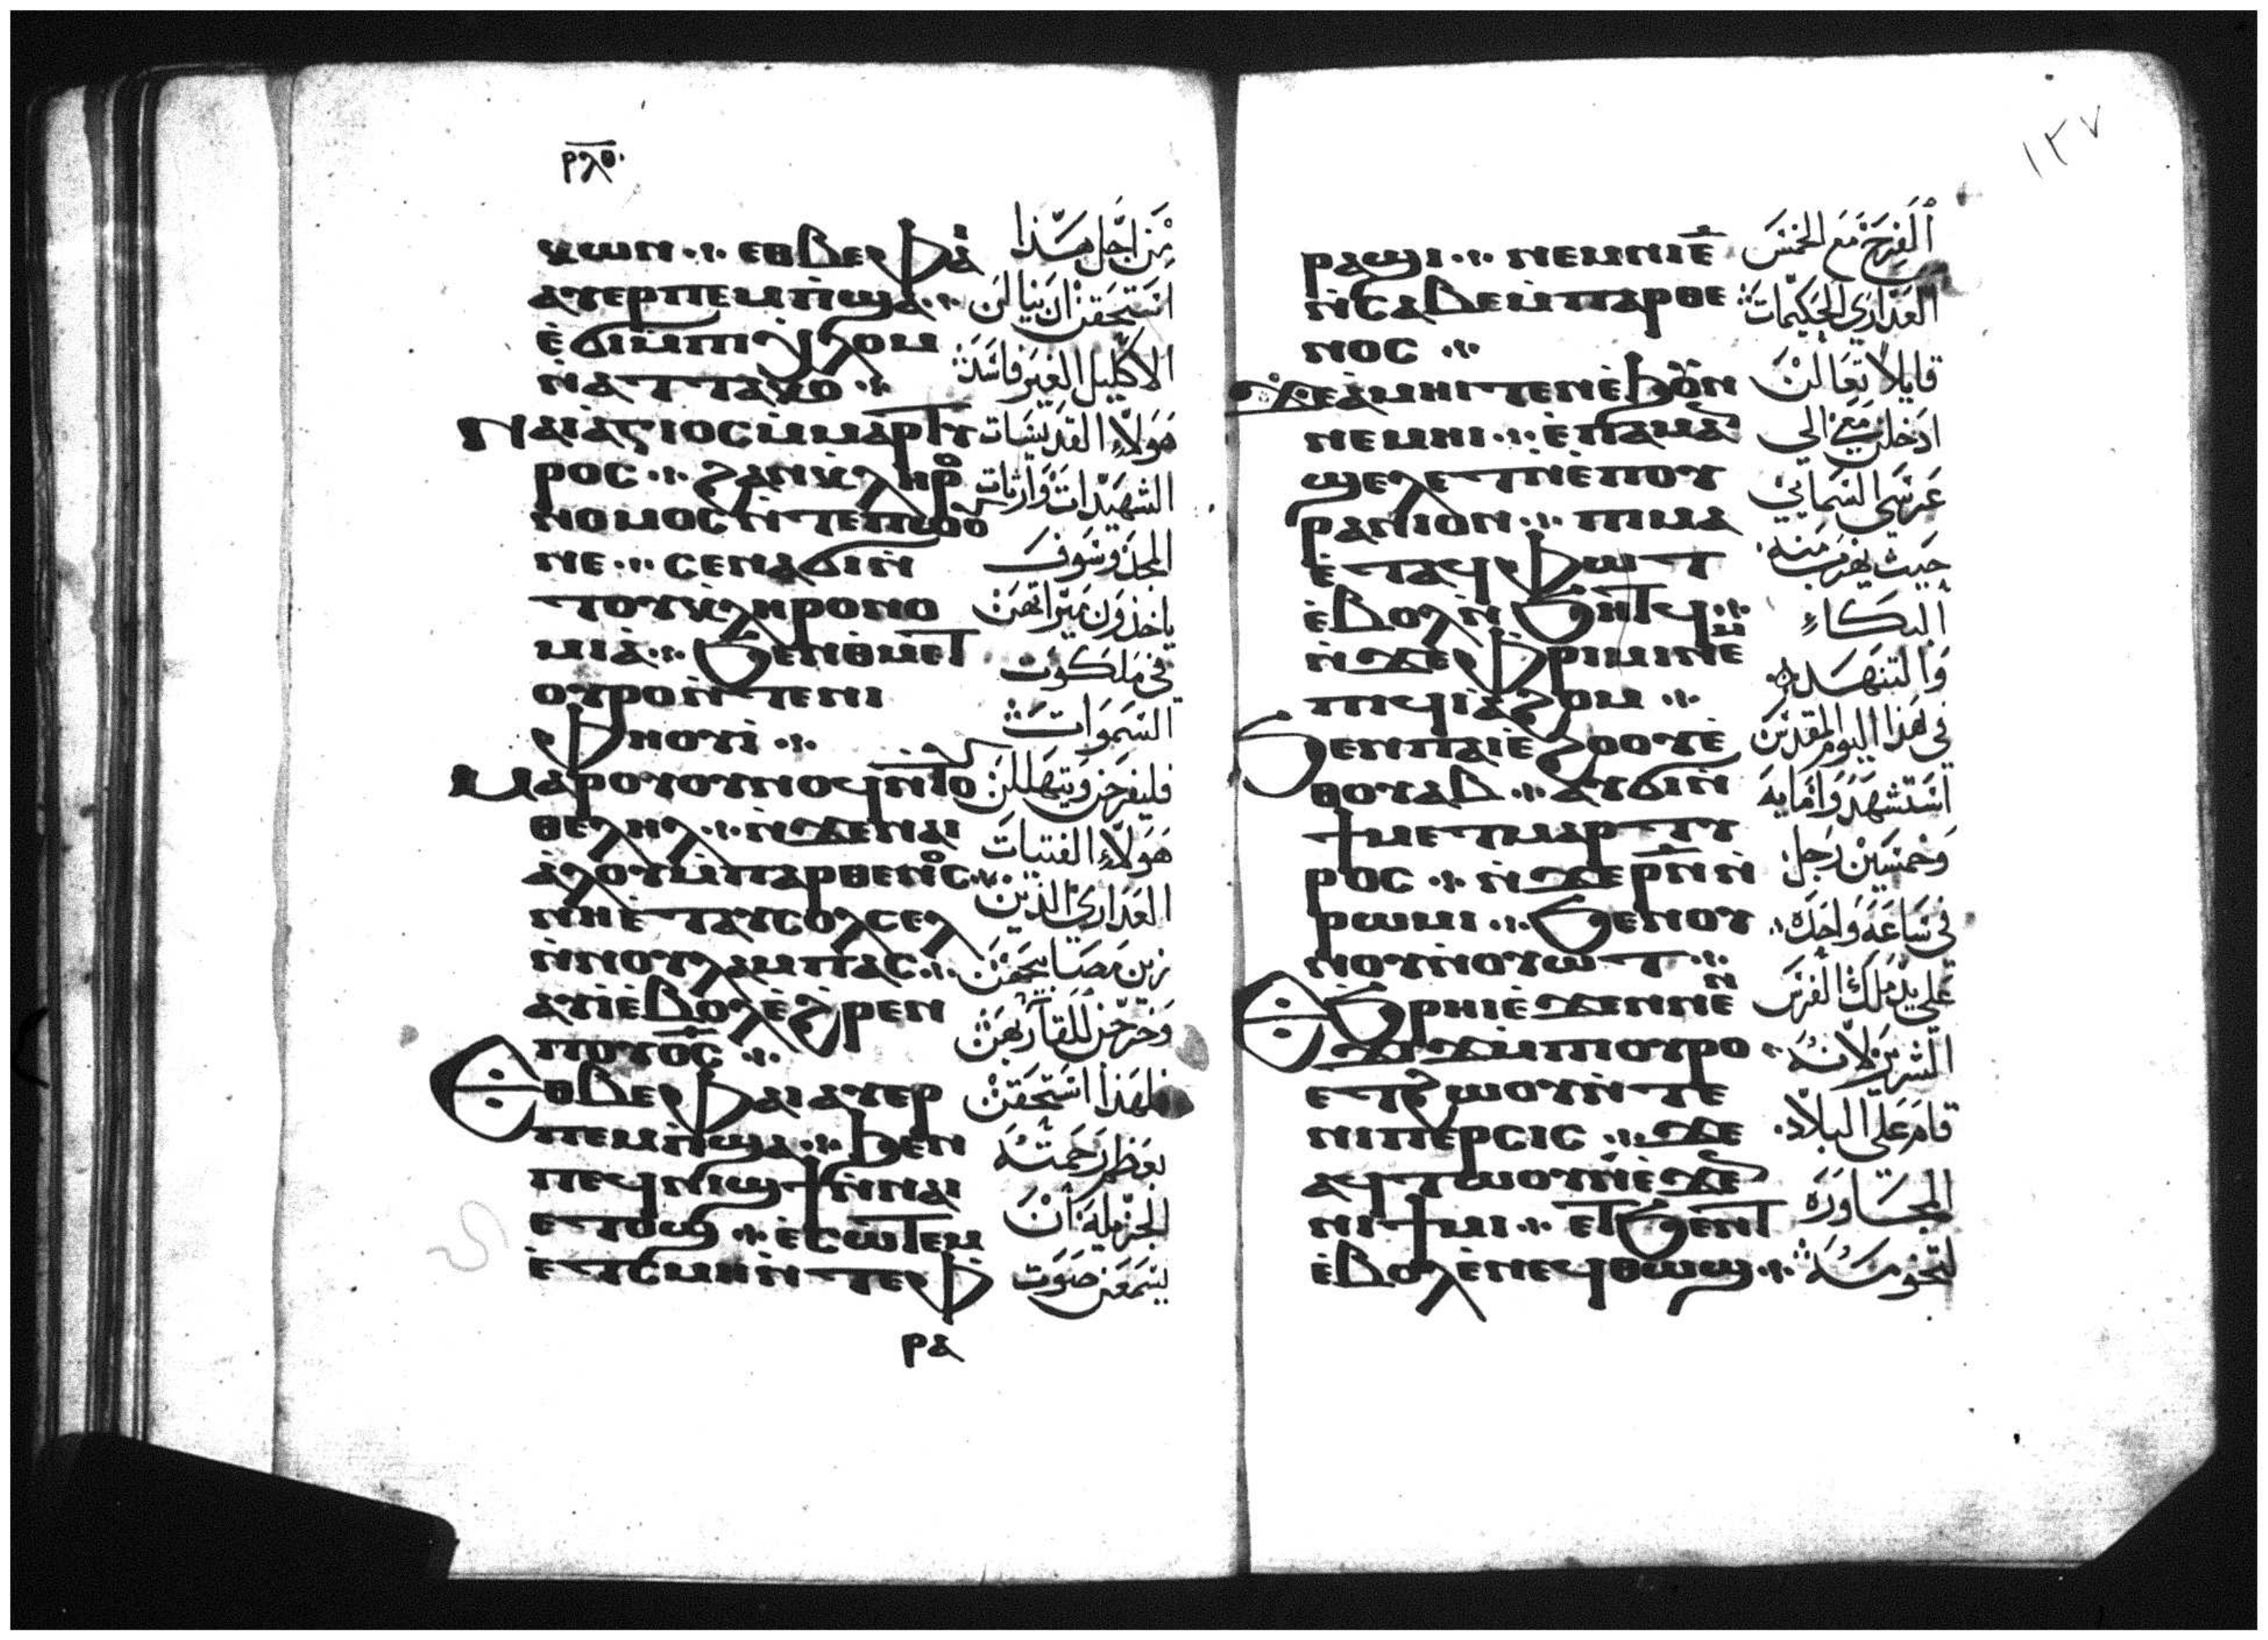 ⲣⲗⲑ
ⲭⲱⲛ ⁘ ⲉⲑⲃⲉⲫⲁⲓ
ⲁⲩⲉⲣⲡⲉⲙⲡ̀ϣⲁ ⁘
ⲉ̀ϭⲓⲙ̀ⲡⲓⲭ̀ⲗⲟⲙ
ⲛ̀ⲁⲧⲧⲁⲕⲟ ⁘
Ⲛⲁⲓⲁ̀ⲅⲓⲟⲥⲙ̀ⲙⲁⲣⲧⲩ
ⲣⲟⲥ ⁘ ϩⲁⲛⲕ̀ⲗⲏⲣⲟ
ⲛⲟⲙⲟⲥⲛ̀ⲧⲉⲡⲱⲟⲩ
ⲛⲉ ⁘ ⲥⲉⲛⲁϭⲓⲛ̀
ⲧⲟⲩⲕ̀ⲗⲏⲣⲟⲛⲟ
ⲙⲓⲁ̀ ⁘ ϧⲉⲛⲑⲙⲉⲧ
ⲟⲩⲣⲟⲛ̀ⲧⲉⲛⲓ
ⲫⲏⲟⲩⲓ̀ ⁘
Ⲙⲁⲣⲟⲩⲟⲩⲛⲟϥⲛ̀ⲧⲟⲩ
ⲑⲉⲗⲏⲗ ⁘ ⲛ̀ϫⲉⲛⲁⲓ
ⲁ̀ⲗⲟⲩⲙ̀ⲡⲁⲣⲑⲉⲛⲟⲥ ⁘
ⲛⲏⲉ̀ⲧⲁⲩⲥⲟⲗⲥⲉⲗ
ⲛ̀ⲛⲟⲩⲗⲁⲙⲡⲁⲥ ⁘
ⲁⲩⲓ̀ⲉ̀ⲃⲟⲗⲉ̀ϩ̀ⲣⲉⲛ
ⲡⲟⲩⲟ̅ⲥ̅ ⁘
Ⲉⲑⲃⲉⲫⲁⲓⲁⲩⲉⲣ
ⲡⲉⲙⲡ̀ϣⲁ ⁘ ϧⲉⲛ
ⲡⲉϥⲛⲓϣϯⲛ̀ⲛⲁⲓ
ⲉⲧⲟϣ ⁘ ⲉ̀ⲥⲱⲧⲉⲙ
ⲉ̀ⲧⲥⲙⲏⲛ̀ⲧⲉⲫ
ⲣⲁ
مِن اجل هذا
استحقن ان ينالن
الاكليل الغير فاسد
هولاء القديسات
الشهيدات وارثات
المجد وسوف
ياخذون ميراثهن
في ملكوت
السموات
فليفرحن ويتهللن
هولاء الفتيات
العداري الذين
زين مصابيحهن
وخرجن للقا ربهن
فلهذا استحقن
بعظم رحمته
الجزيله ان
يسمعن صوت
١٣٧
ⲣⲁϣⲓ ⁘ ⲛⲉⲙⲛⲓⲉ̅
ⲛ̀ⲥⲁⲃⲉⲙ̀ⲡⲁⲣⲑⲉ
ⲛⲟⲥ ⁘
Ϫⲉⲁ̀ⲙⲏⲓⲧⲉⲛⲉ̀ϧⲟⲩⲛ
ⲛⲉⲙⲏⲓ ⁘ ⲉ̀ⲡⲁⲙⲁⲛ̀
ϣⲉⲗⲉⲧⲛ̀ⲉ̀ⲡⲟⲩ
ⲣⲁⲛⲓⲟⲛ ⁘ ⲡⲓⲙⲁ
ⲉ̀ⲧⲁϥⲫⲱⲧ
ⲉ̀ⲃⲟⲗⲛ̀ϧⲏⲧϥ ⁘
ⲛ̀ϫⲉⲫⲣⲓⲙⲓⲛⲉⲙ
ⲡⲓϥⲓⲁ̀ϩⲟⲙ ⁘
Ϧⲉⲛⲡⲁⲓⲉ̀ϩⲟⲟⲩⲉ̀
ⲑⲟⲩⲁⲃ ⁘ ⲁⲩϭⲓⲛ̀
ϯⲙⲉⲧⲙⲁⲣⲧⲩ
ⲣⲟⲥ ⁘ ⲛ̀ϫⲉⲣ̅ⲛ̅ⲛ̀
ⲣⲱⲙⲓ ⁘ ϧⲉⲛⲟⲩ
ⲛⲟⲩⲛ̀ⲟⲩⲱⲧ ⁘
Ⲉϧ̀ⲣⲏⲓⲉ̀ϫⲉⲛⲛⲉⲛ
ϫⲓϫⲙ̀ⲡⲓⲟⲩⲣⲟ
ⲉⲧϩⲱⲟⲩⲛ̀ⲧⲉ
ⲛⲓⲡⲉⲣⲥⲓⲥ ⁘ ϫⲉ
ⲁϥⲧⲱⲟⲩⲛⲉ̀ϫⲉⲛ
ⲛⲓϯⲙⲓ ⁘ ⲉⲧϧⲉⲛⲧ
ⲉ̀ⲃⲟⲗⲉ̀ⲛⲉϥⲑⲱϣ ⁘
الفرح مع الخمس
العداري الحكيمات
قايلا تعالن
ادخلن معي الي
عرسي السمايي
حيث يهرب منه
البكاء
والتنهد
في هذا اليوم المقدس
استشهد وامايه
وخمسين رجل
في ساعه واحده
علي يد ملك الفرس
الشرير لانه
قام علي البلاد
المجاوره
لتخومه